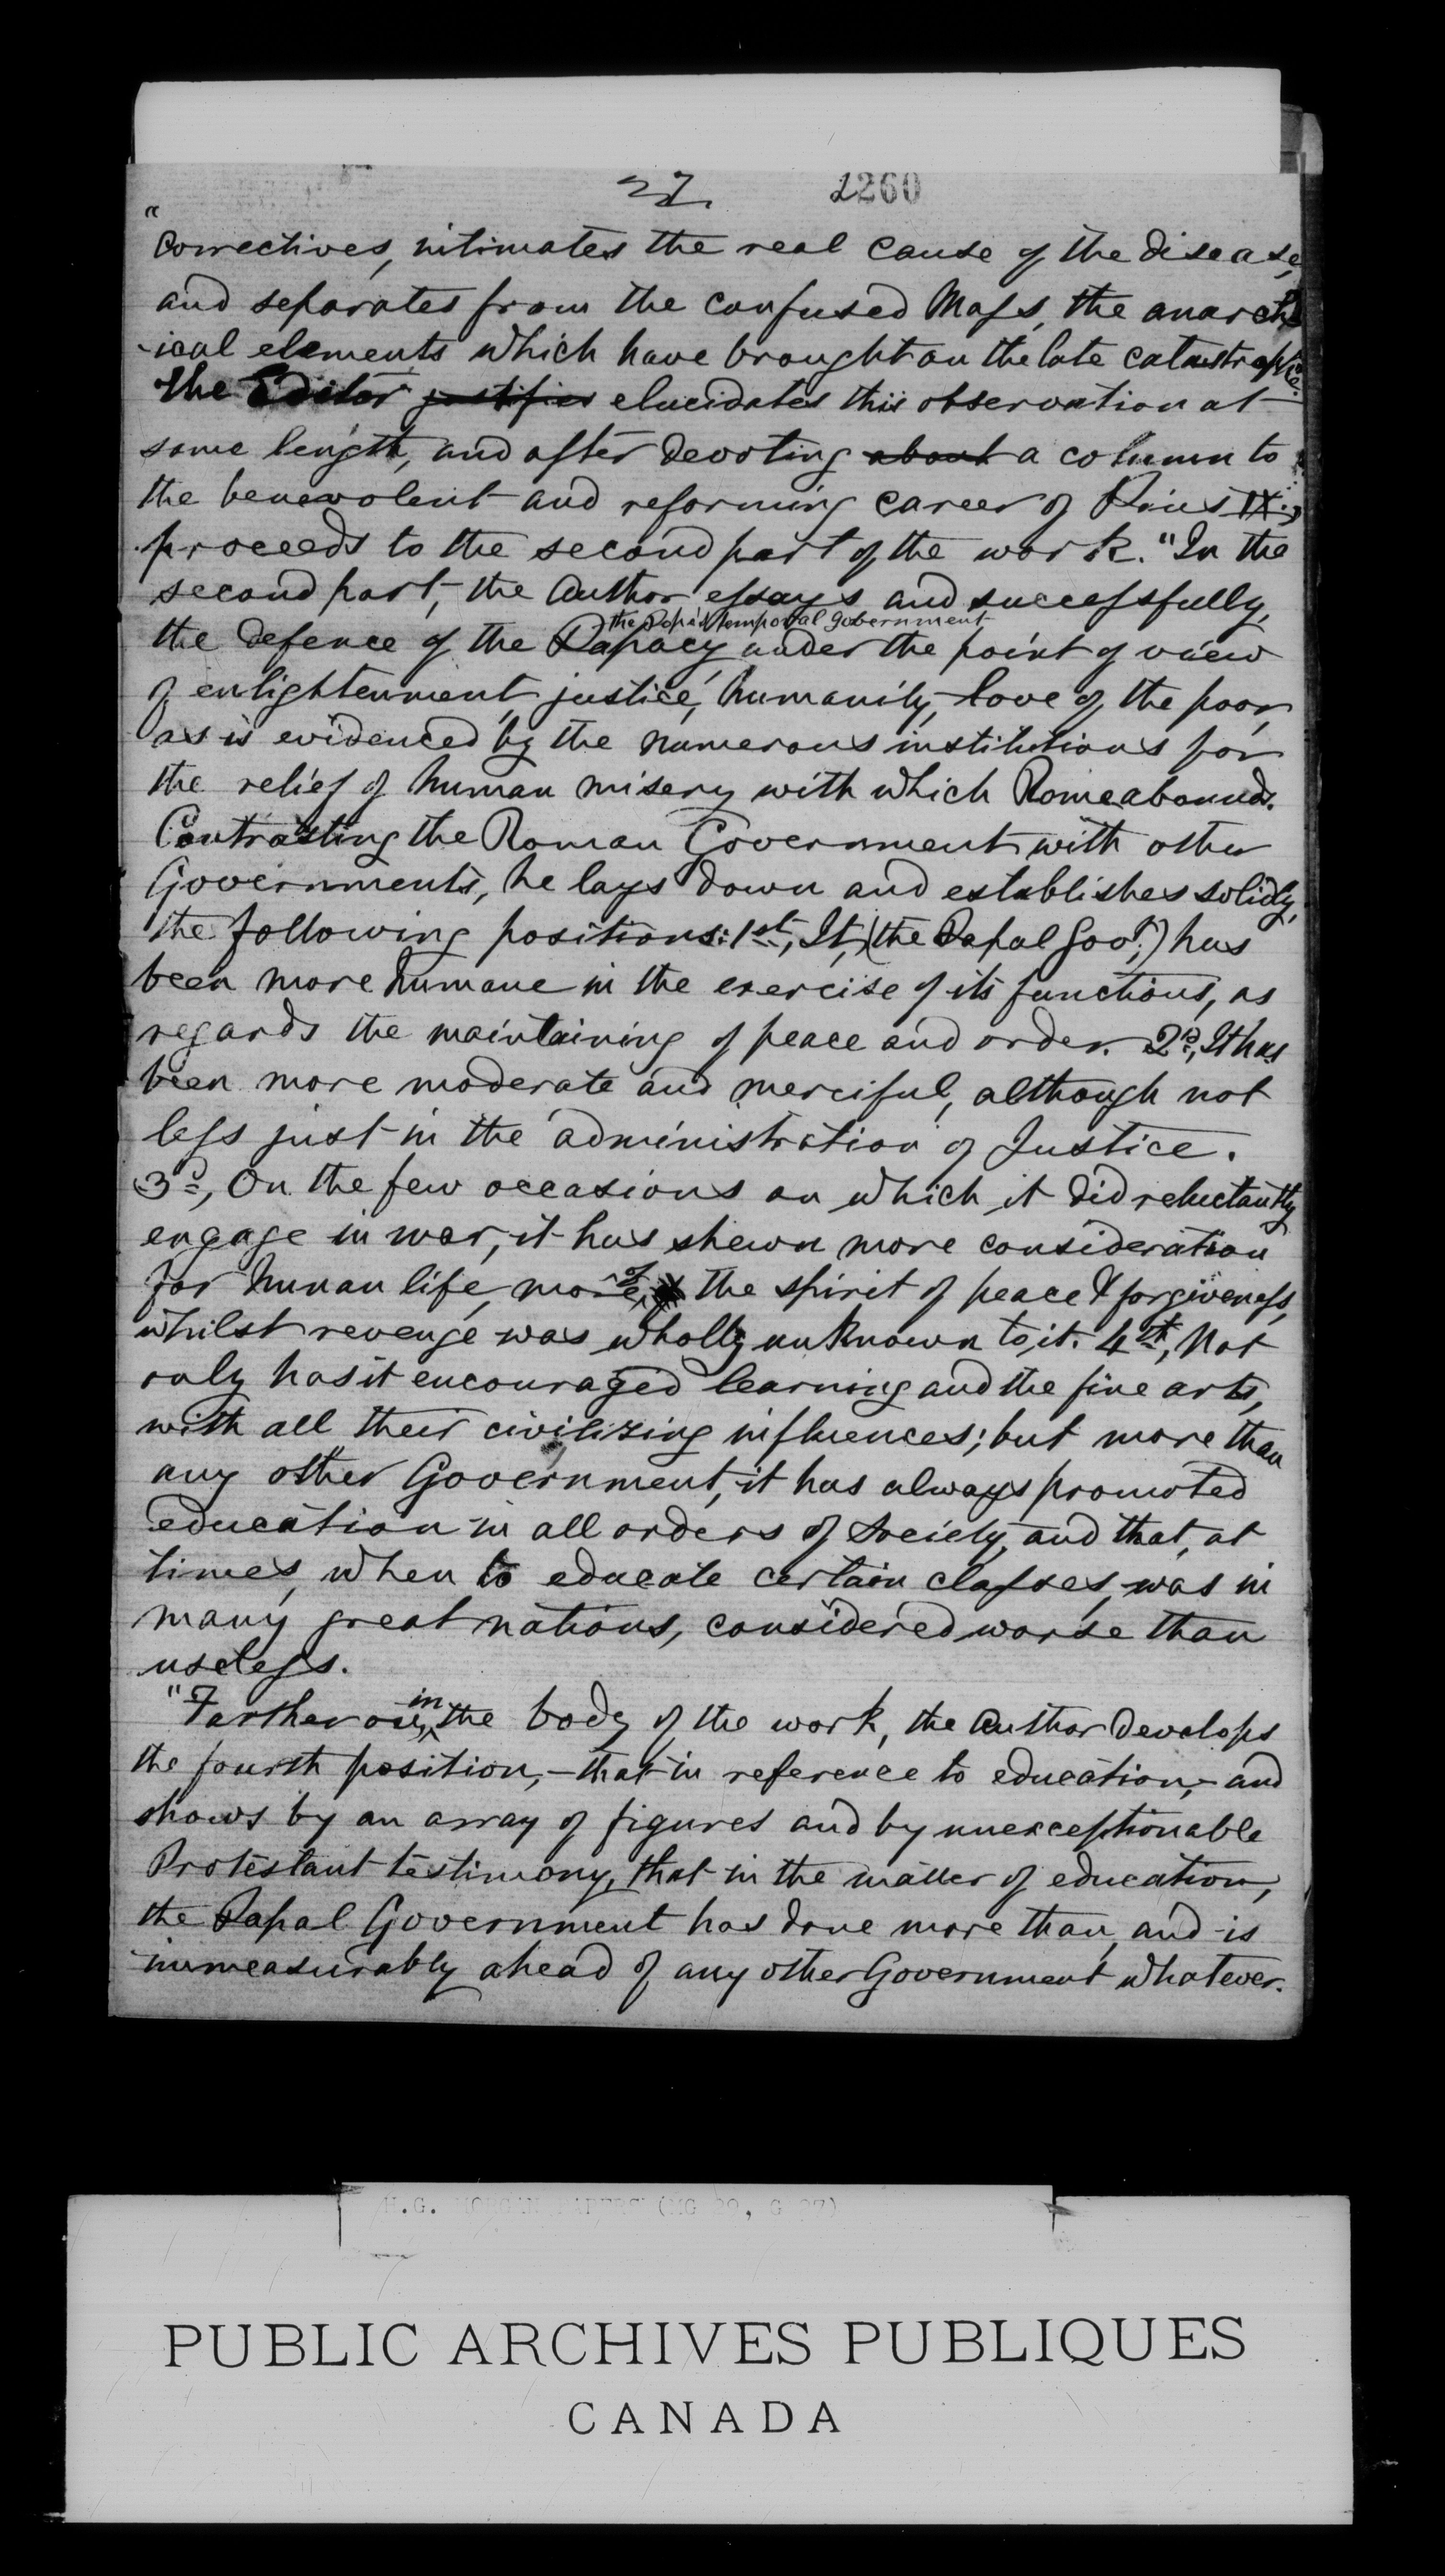 27. 1260
"
Correctives, intimates the real cause of the disease,
and separates from the confused Mass, the anarch-
-ical elements which have brought on the late catastrophe.
The Editor justifies elucidates this observation at
some length, and after devoting about a column to
the benevolent and reforming career of Pius IX.,
proceeds to the second part of the work. "In the
second part, the Author essays and successfully,
the Pope's temporal government
the defence of the Papacy under the point of view
of enlightenment, justice, humanity, love of the poor,
as is evidenced by the numerous institutions for
the relief of human misery with which Rome abounds.
Contrasting the Roman Government with other
Governments, he lays down and establishes solidly,
the following positions: 1st, It, (the Papal Govt.,) has
been more humane in the exercise of its functions, as
regards the maintaining of peace and order. 2d, It has
been more moderate and merciful, although not
less just in the administration of Justice.
3d, On the few occasions on which it did reluctantly
engage in war, it has shewn more consideration
for human life, more of the spirit of peace & forgiveness,
whilst revenge was wholly unknown to it. 4th, Not
only has it encouraged learning and the fine arts,
with all their civilizing influences; but more than
any other Government, it has always promoted
education in all orders of Society, and that, at
times, when to educate certain classes, was in
many great nations, considered worse than
useless.
"Farther on, in the body of the work, the Author develops
the fourth position, - that in reference to education, - and
shows by an array of figures and by unexceptionable
Protestant testimony, that in the matter of education,
the Papal Government has done more than, and is
immeasurably ahead of any other Government whatever.
H.G. MORGAN PAPERS (MG 29, G 27)
PUBLIC ARCHIVES PUBLIQUES
CANADA